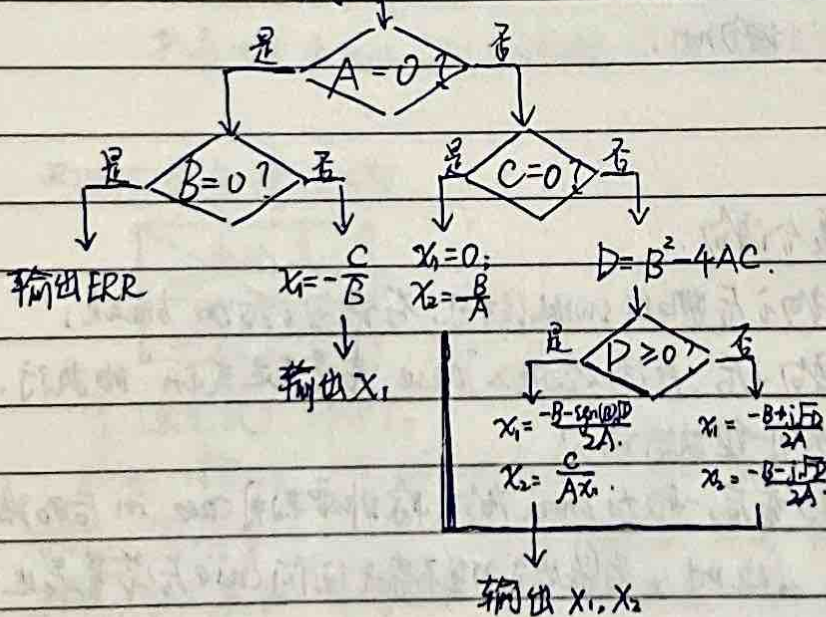 是 否
A=0?
是 否 是 否
B=0? C=0?
输出ERR
x₁=-C/B
x₁=0;
x₂=-B/A
D=B²-4AC.
输出X₁
是 否
D≥0?
x₁=-B-sgn(B)√D/2A.
x₂=C/Ax₁.
x₁=-B+i√-D/2A
x₂=-B-i√-D/2A
输出X₁,X₂